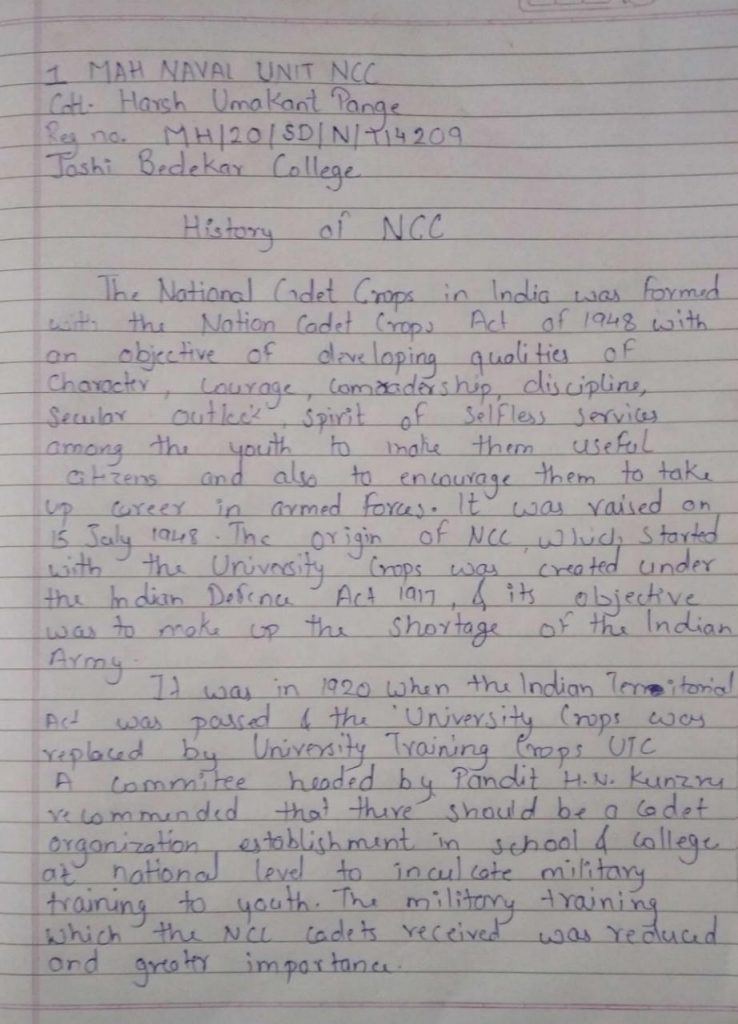 1 MAH NAVAL UNIT NCC
Cdt. Harsh Umakant Pange
Reg no. MH/20/SD/N/714209
Joshi Bedekar College
History of NCC
The National Cadet Crops in India was formed
with the Nation Cadet Crops Act of 1948 with
an objective of developing qualities of
Character, Courage, comradership, discipline,
Secular outlook, spirit of selfless services
among the youth to make them useful
citizens and also to encourage them to take
up career in armed forces. It was raised on
15 July 1948. The origin of NCC, which started
with the University Crops was created under
the Indian Defence Act 1917, & its objective
was to make up the shortage of the Indian
Army.
It was in 1920 when the Indian Territorial
Act was passed & the 'University Crops was
replaced by University Training Crops UTC
A commitee headed by Pandit H.N. Kunzru
recommended that there should be a cadet
organization establishment in school & college
at national level to inculcate military
training to youth. The military training
which the NCC cadets received was reduced
and greater importance.